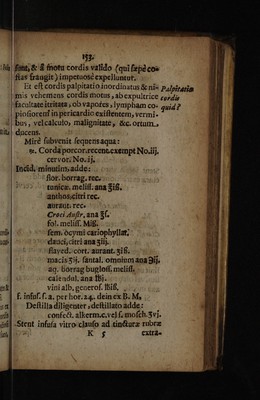 153.
sunt, & à motu cordis valido (qui sæpè co-
stas frangit) impetuosè expelluntur.
Et est cordis palpitatio inordinatus & ni-
mis vehemens cordis motus, ab expultrice
facultate irritata, ob vapores, lympham co-
piosiorem in pericardio existentem, vermi-
bus, vel calculo, malignitate, &c. ortum
ducens.
Palpitatio
cordis
quid?
Mirè subvenit sequens aqua:
℞. Corda porcor. recent. exempt No. iij.
cervor. No. ij.
Incid. minutim. adde:
flor. borrag. rec.
tunicæ. meliss. ana ℥iß.
anthos. citri rec.
aurant. rec.
Croci Austr. ana ℥ß.
fol. meliss. Miß.
sem. ocymi cariophyllat.
dauci, citri ana ʒiij.
flaved. cort. aurant. ʒiß.
macis ʒij. santal. omnium ana ℈ij.
aq. borrag bugloss. meliss.
calendul. ana ℔j.
vini alb. generos. ℔iß.
f. infus. s. a. per hor. 24. dein ex B. M.
Destilla diligenter, destillato adde:
confect. alkerm. c. vel s. mosch. ʒvj.
Stent infusa vitro clauso ad tincturæ rubræ
K 5
extra-